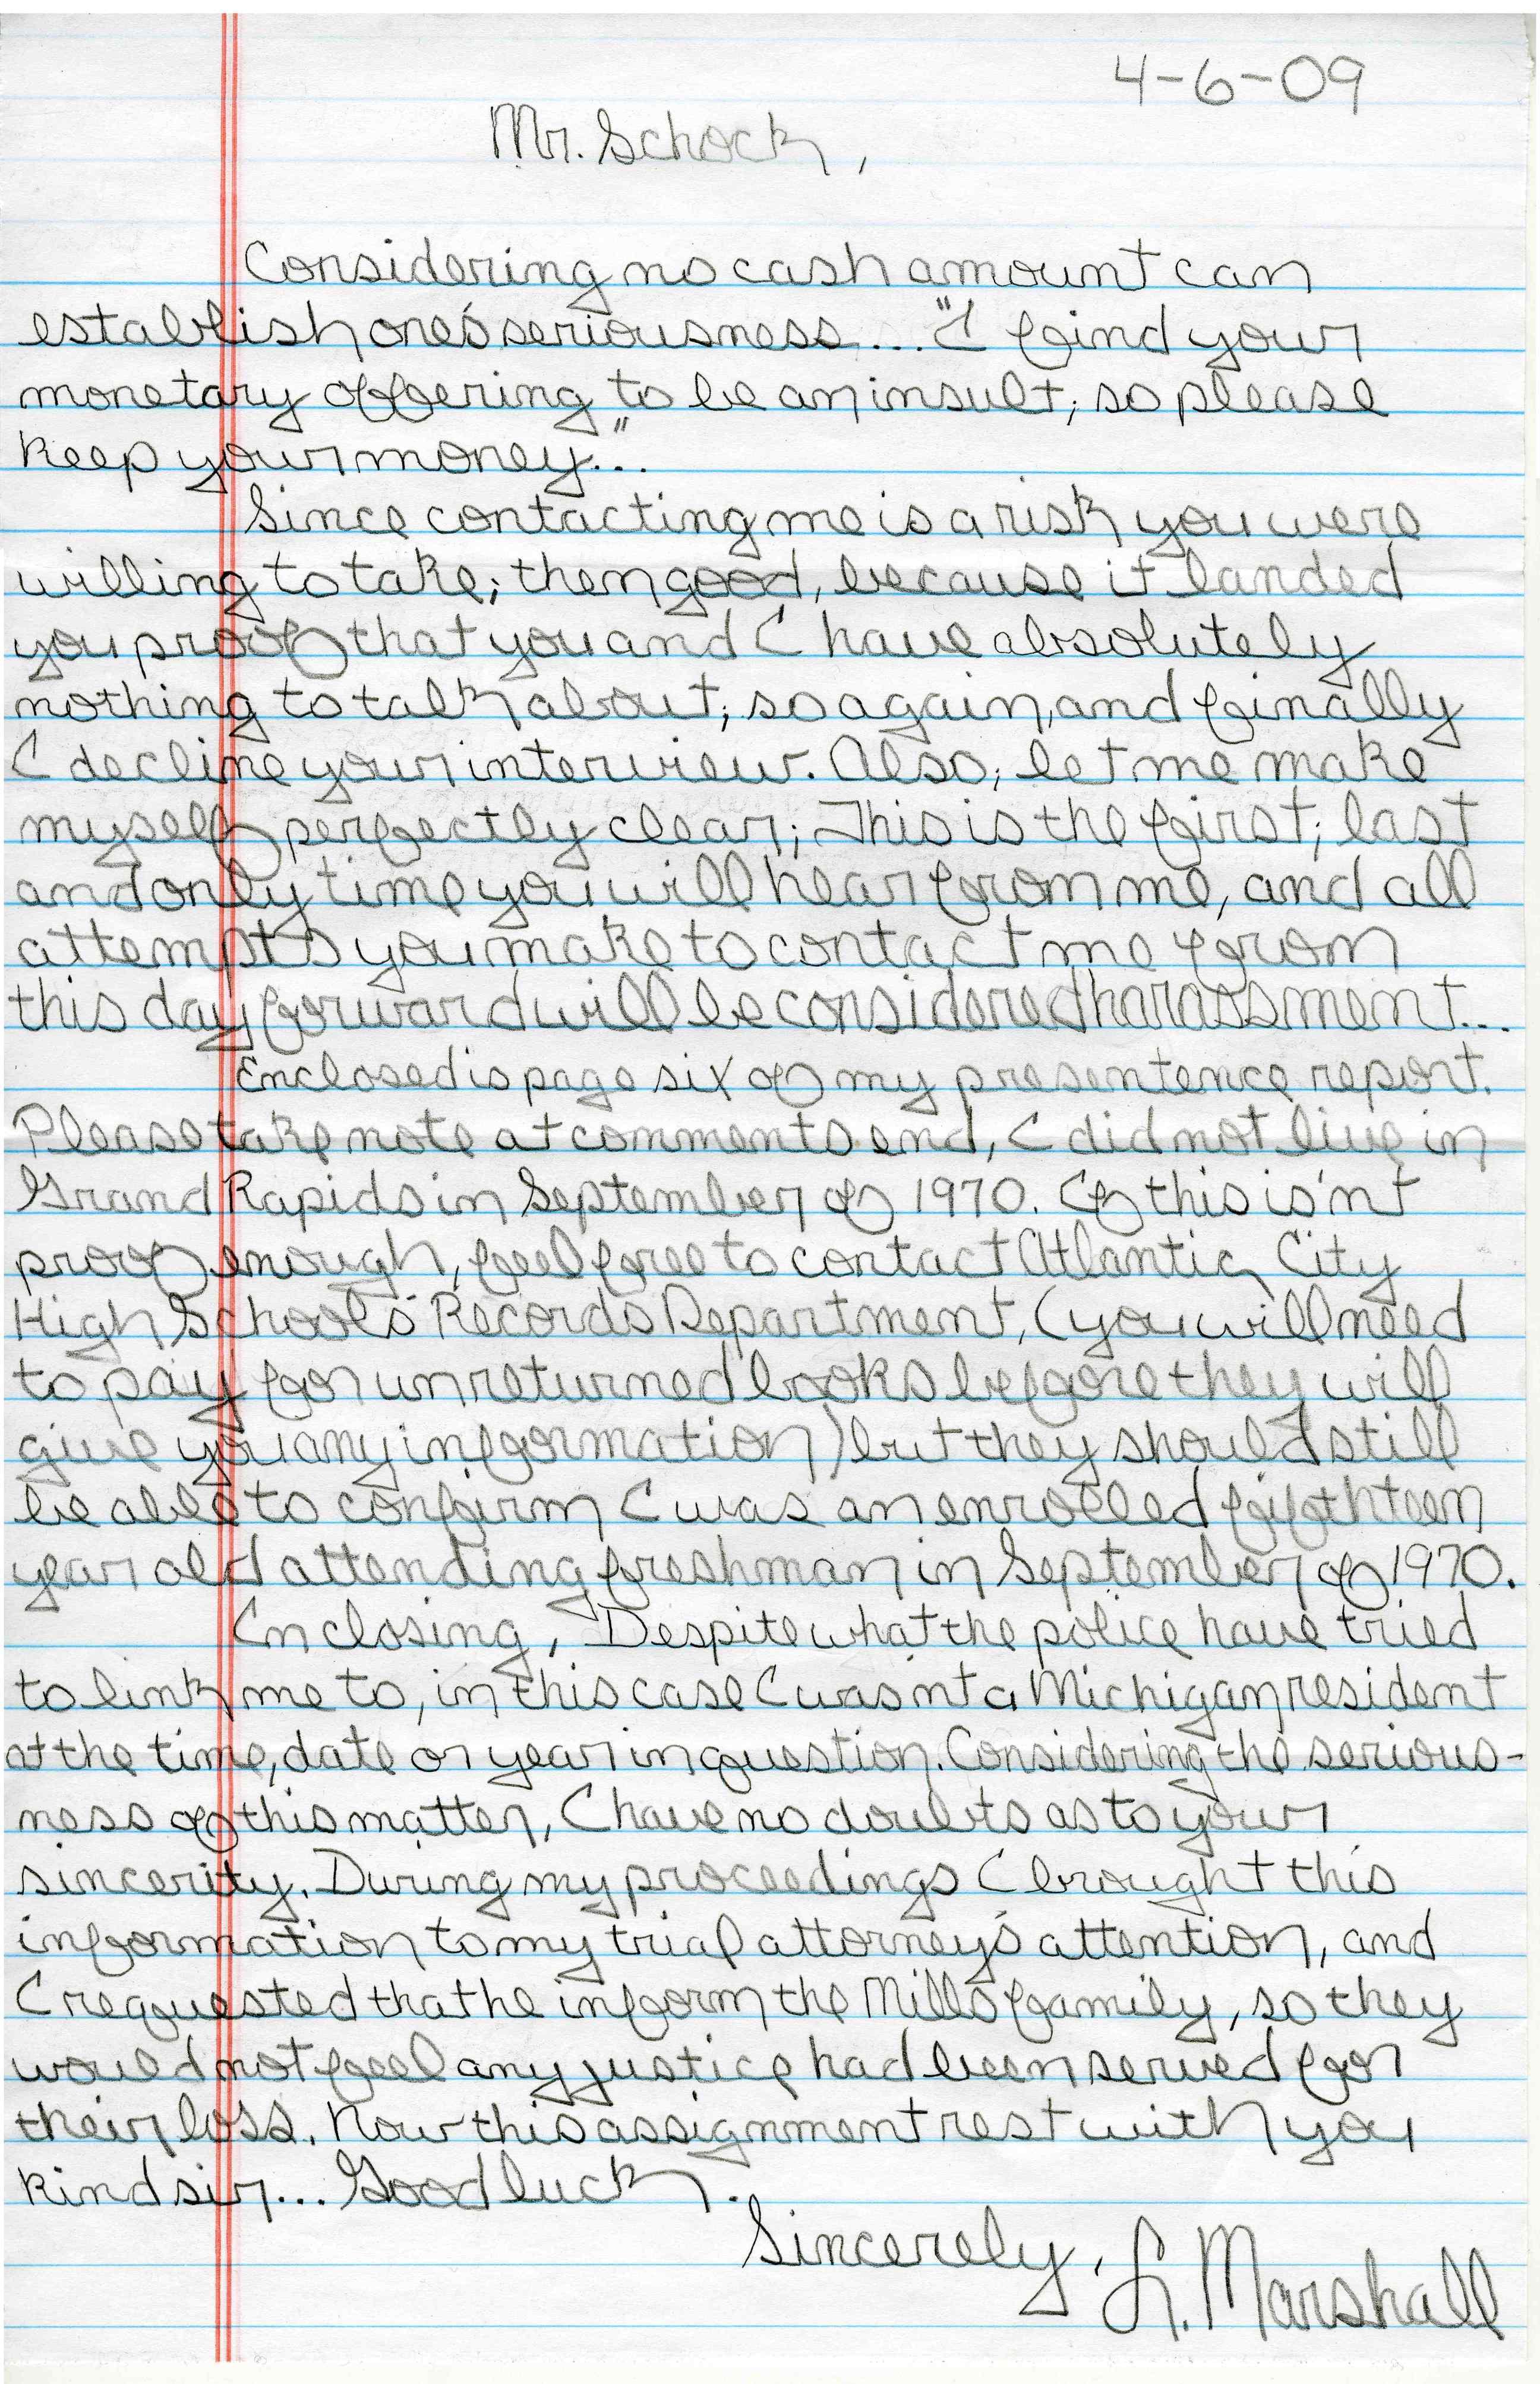 4-6-09
Mr. Schock,
Considering no cash amount can
establish one's seriousness... "I find your
monetary offering to be an insult; so please
keep your money"...
Since contacting me is a risk you were
willing to take; then good, because it landed
you proof that you and I have absolutely
nothing to talk about; so again, and finally
I decline your interview. Also, let me make
myself perfectly clear; This is the first, last
and only time you will hear from me, and all
attempts you make to contact me from
this day forward will be considered harassment...
Enclosed is page six of my presentence report.
Please take note at comments end, I did not live in
Grand Rapids in September of 1970. If this is'nt
proof enough, feel free to contact Atlantic City
High School's Records Department, (you will need
to pay for unreturned books before they will
give you any information) but they should still
be able to confirm I was an enrolled fifthteen
year old attending freshman in September of 1970.
In closing, Despite what the police have tried
to link me to, in this case I was'nt a Michigan resident
at the time, date or year in question. Considering the serious-
ness of this matter, I have no doubts as to your
sincerity. During my proceedings I brought this
information to my trial attorney's attention, and
I requested that he inform the Mills family, so they
would not feel any justice had been served for
their loss. Now this assignment rest with you
kind sir... Good luck.
Sincerely, L. Marshall